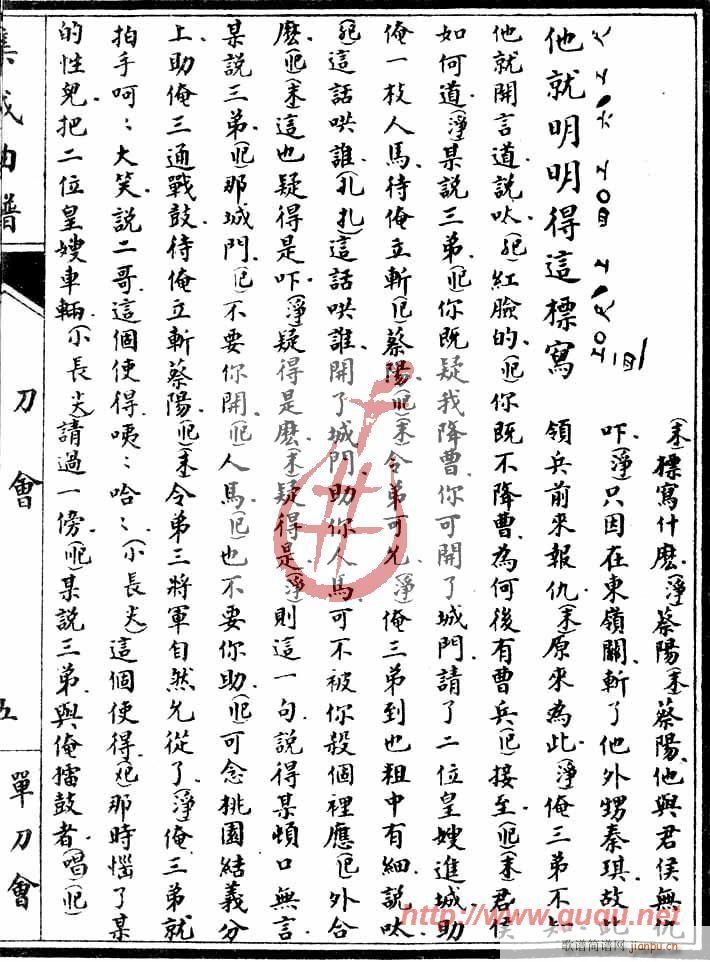 (末)標寫什麽(淨)蔡陽(末)蔡陽他與君侯無仇
吓(淨)只因在東嶺關斬了他外甥秦琪故此
他就明明得這標寫 領兵前來報仇(末)原來為此(淨)俺三弟不知
他就開言道說呔紅臉的你既不降曹為何後有曹兵接至(末)君侯
如何道(淨)某說三弟你既疑我降曹你可開了城門請了二位皇嫂進城助
俺一枝人馬待俺立斬蔡陽(末)令弟可允(淨)俺三弟到也粗中有細說呔
這話哄誰這話哄誰開了城門助你人馬可不被你殺個裡應外合
麽(末)這也疑得是吓(淨)疑得是麽(末)疑得是(淨)則這一句說得某頓口無言
某說三弟那城門不要你開人馬也不要你助可念桃園結義分
上助俺三通戰鼓待俺立斬蔡陽(末)令弟三將軍自然允從了(淨)俺三弟就
拍手呵呵大笑說二哥這個使得咦咦哈哈(小長尖)這個使得那時惱了某
的性兒把二位皇嫂車輛(小長尖)請過一傍某說三弟與俺擂鼓者(唱)
集成曲譜
刀會
五
單刀會
http://www.guqu.net
歌谱简谱网
jianpu.cn